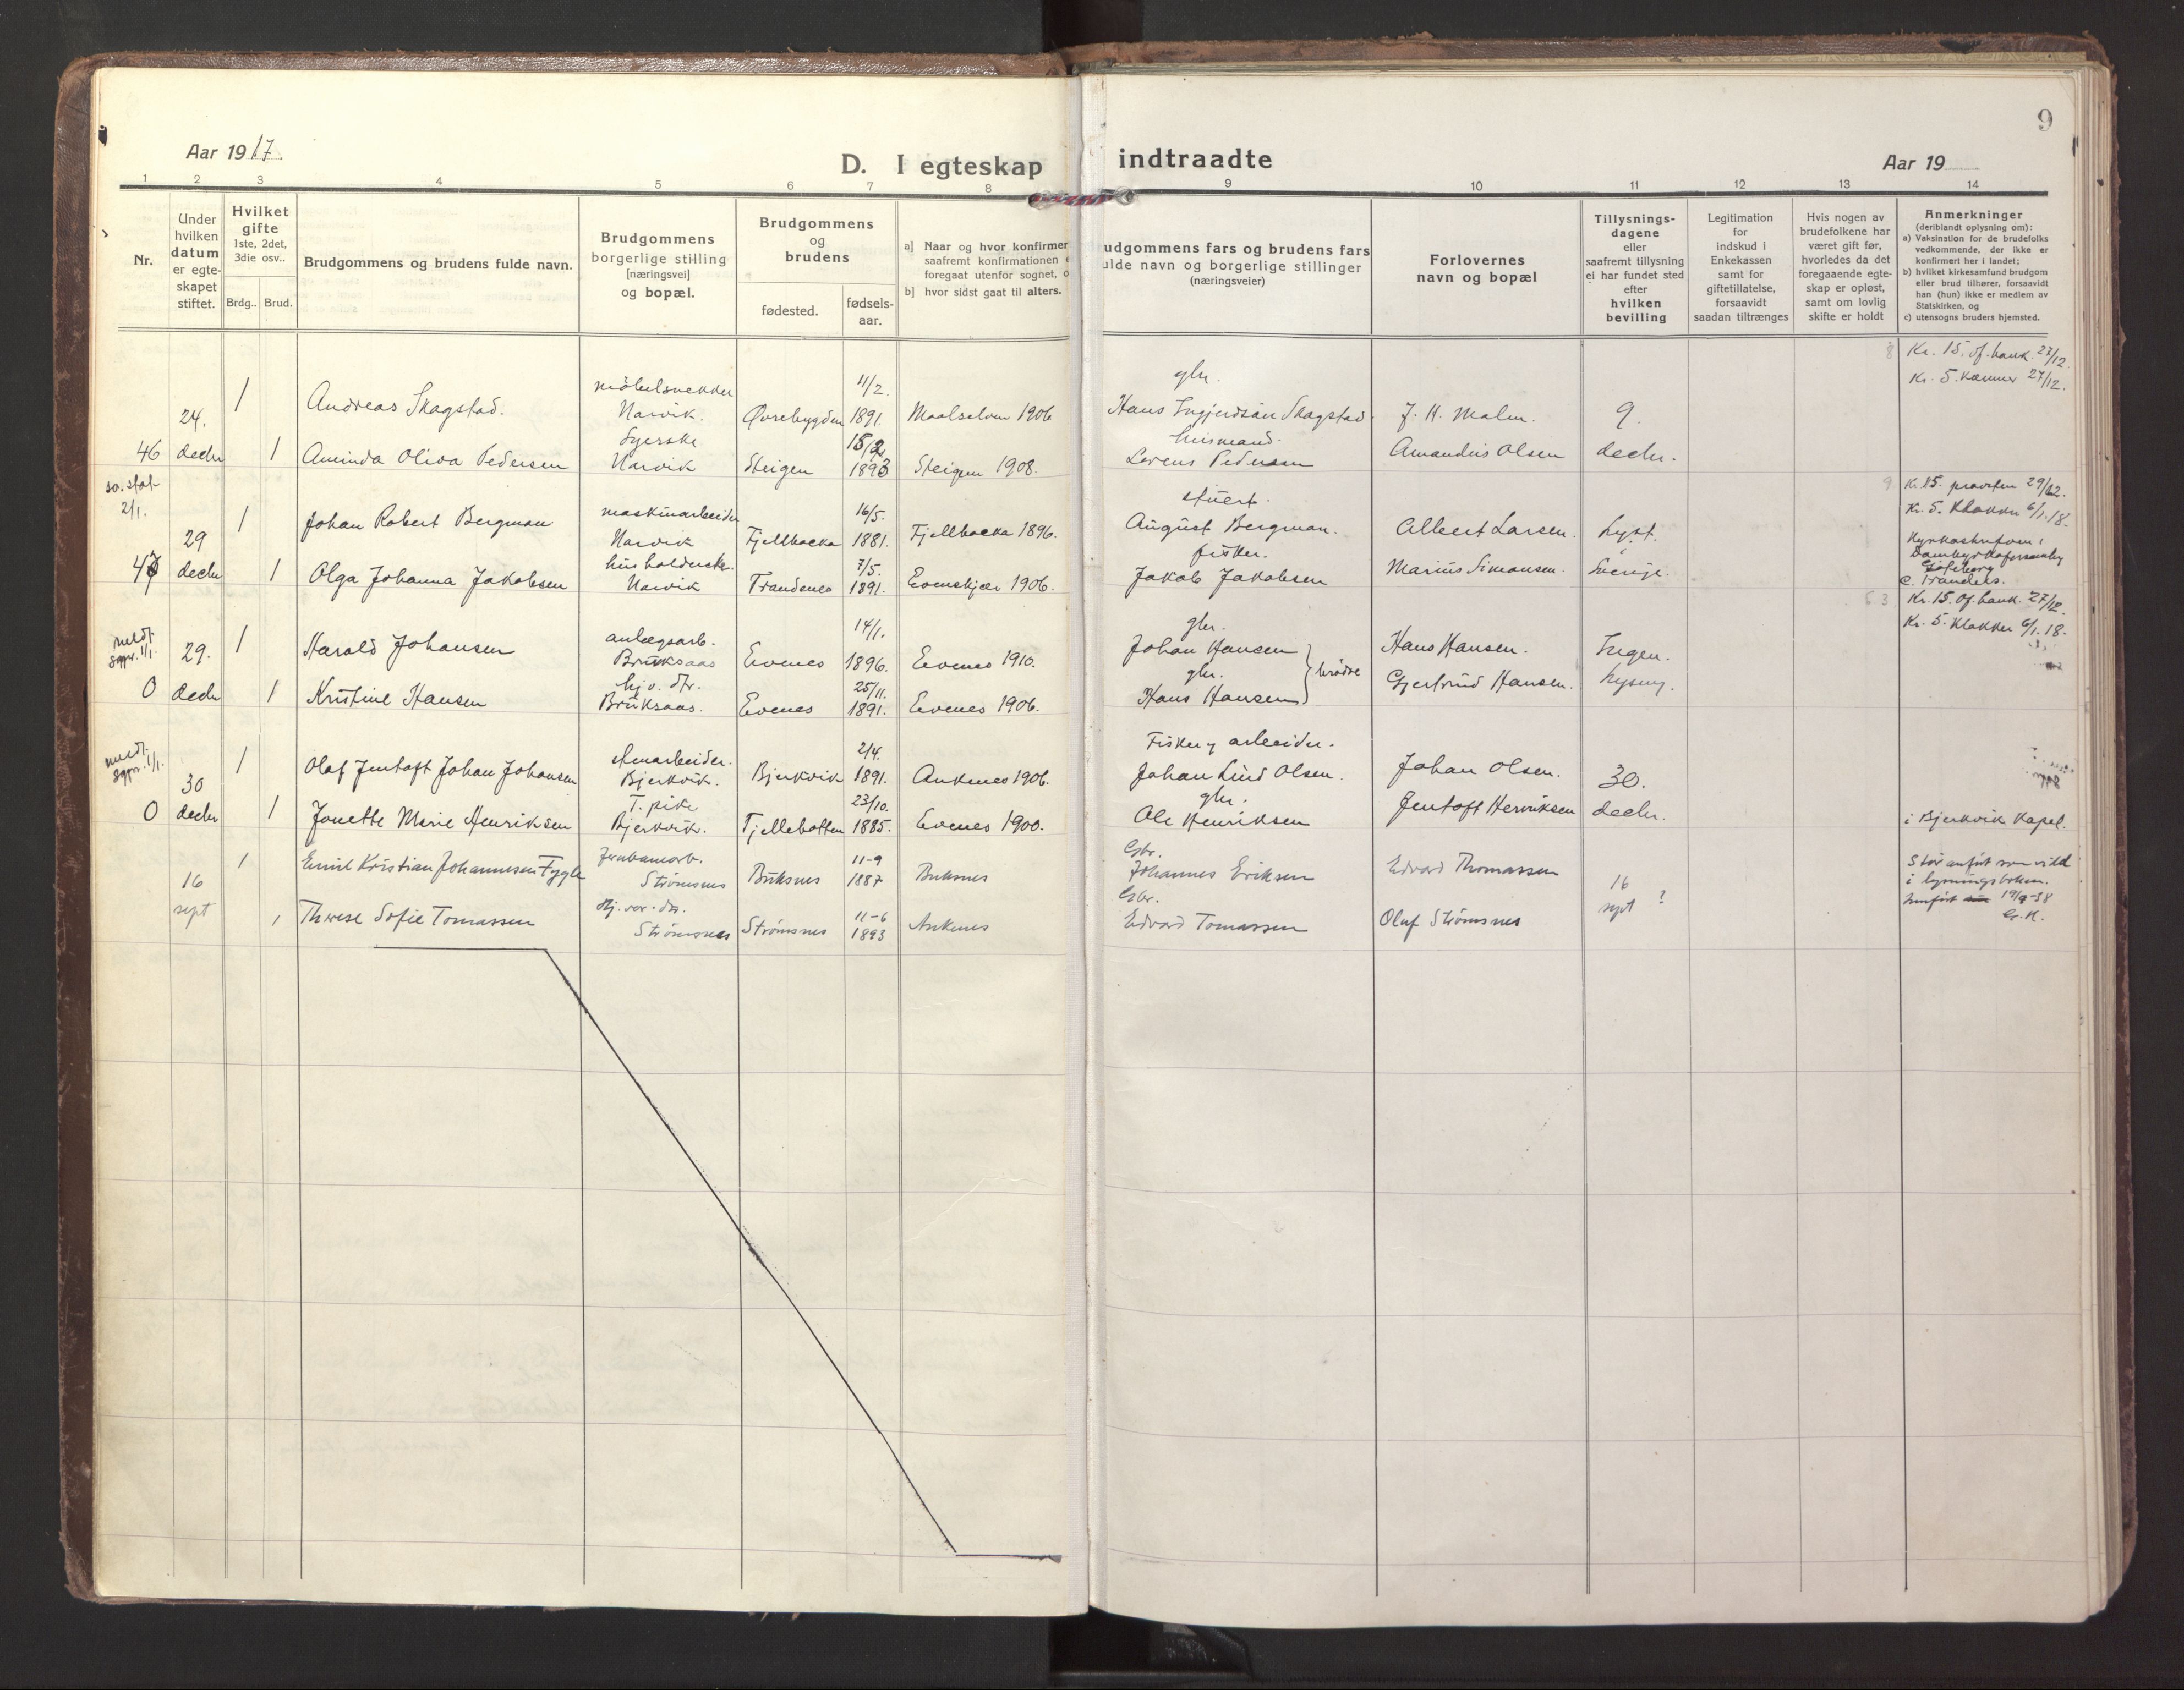 9
Aar 1917.
D. I egteskap indtraadte
Aar 19
1 2 3 4 5 6 7 8 9 10 11 12 13 14
Nr.
Under
hvilken
datum
er egte-
skapet
stiftet.
Hvilket
gifte
1ste, 2det,
3die osv..
Brdg.. Brud.
Brudgommens og brudens fulde navn.
Brudgommens
borgerlige stilling
[næringsvei]
og bopæl.
Brudgommens
og
brudens
fødested.
fødsels-
aar.
a] Naar og hvor konfirmer
saafremt konfirmationen
foregaat utenfor sognet, o
b] hvor sidst gaat til alters.
udgommens fars og brudens fars
ulde navn og borgerlige stillinger
(næringsveier)
Forlovernes
navn og bopæl
Tillysnings-
dagene
eller
saafremt tillysning
ei har fundet sted
efter
hvilken
bevilling
Legitimation
for
indskud i
Enkekassen
samt for
giftetillatelse,
forsaavidt
saadan tiltrænges
Hvis nogen av
brudefolkene har
været gift før,
hvorledes da det
foregaaende egte-
skap er opløst,
samt om lovlig
skifte er holdt
Anmerkninger
(deriblandt oplysning om):
a) Vaksination for de brudefolks
vedkommende, der ikke er
konfirmert her i landet;
b) hvilket kirkesamfund brudgom
eller brud tilhører, forsaavidt
han (hun) ikke er medlem av
Statskirken, og
c) utensogns bruders hjemsted.
46
24.
decbr
1
Andreas Skagstad.
møbelsnekker
Narvik.
Øvrebygden
4/2.
1891.
Maalselven 1906
gbr.
Hans Ingjerdsen Skagstad.
J. H. Malm.
9.
decbr.
8
Kr. 15. of. bank. 27/12.
Kr. 5. kæmner 27/12.
1
Aminda Oliva Pedersen
Syerske
Narvik
Steigen
1893
Steigen 1908.
husmand.
Lorens Pedersen
Amandus Olsen
2/1.
47
29
decbr
1
Johan Robert Bergman
maskinarbeider
Narvik
Fjellbacka
16/5.
1881.
Fjellbacka 1896.
stuert.
August Bergman.
Albert Larsen.
Lyst.
i
Sverige.
9
Kr. 85. provsten 29/12.
Kr. 5. Klokker 6/1.18.
1
Olga Johanna Jakobsen
husholderske.
Narvik
Trandenes
7/5.
1891.
Evenskjær 1906.
fisker.
Jakob Jakobsen
Marius Simonsen.
Göteborg
c. Trandenes.
meldt
sgpr. 1/1.
0
29.
decbr
1
Harald Johansen
anlegsarb.
Bruksaas
Evenes
14/1.
1896.
Evenes 1910.
gbr.
Johan Hansen
brødre
Hans Hansen.
Ingen
lysning.
Kr. 15. of. bank. 27/12.
Kr. 5. Klokker 6/1. 18.
1
Kristine Hansen
hj. v. dtr.
Bruksaas.
Evenes
25/11.
1891.
Evenes 1906.
gbr.
Hans Hansen
Gjertrud Hansen.
meldt
sgpr. 1/1.
0
30
decbr
1
Olaf Jentoft Johan Johansen
stenarbeider.
Bjerkvik.
Bjerkvik
2/4.
1891.
Ankenes 1906.
Fisker og arbeider.
Johan Lind Olsen.
Johan Olsen.
30.
decbr.
1
Jonette Marie Henriksen
T. pike
Bjerkvik.
Fjellebotten
23/10.
1885.
Evenes 1900.
gbr.
Ole Henriksen
Jentoft Henriksen
i Bjerkvik Kapel.
16
sept
1
Emil Kristian Johannesen Fygle
Jernbanearb.
Strømsnes
Buksnes
11-9
1887
Buksnes
Gbr.
Johannes Eriksen
Edvard Thomassen
16
sept ?
Står anført som vidd
i lysningsboken.
Innført 19/9-38
G. H.
1
Therese Sofie Tomassen
Hj. vær. dtr.
Strømsnes
Strømsnes
11-6
1893
Ankenes
Gbr.
Edvard Tomassen
Oluf Strømsnes